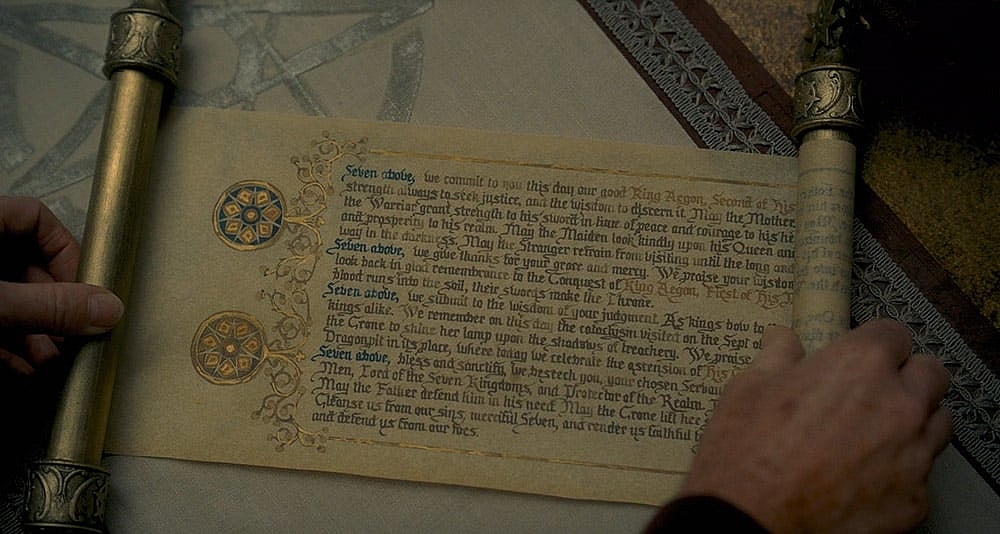 Seven above, we commit to you this day our good King Aegon, Second of his
strength always to seek justice, and the wisdom to discern it. May the Mother
the Warrior grant strength to his sword in time of peace and courage to his he
and prosperity to his realm. May the Maiden look kindly upon his Queen and
way in the darkness. May the Stranger refrain from visiting until the long and
Seven above, we give thanks for your grace and mercy. We praise your wisdom
look back in glad remembrance to the Conquest of King Aegon, First of His
blood runs into the soil, their swords make the Throne.
Seven above, we submit to the wisdom of your judgment. As kings bow to
kings alike. We remember on this day the cataclysm visited on the Sept of
the Crone to shine her lamp upon the shadows of treachery. We praise
Dragonpit in its place, where today we celebrate the ascension of His
Seven above, bless and sanctify, we beseech you, your chosen Servan
Men, Lord of the Seven Kingdoms, and Protector of the Realm.
May the Father defend him in his need. May the Crone lift her
Cleanse us from our sins, merciful Seven, and render us faithful
and defend us from our foes.